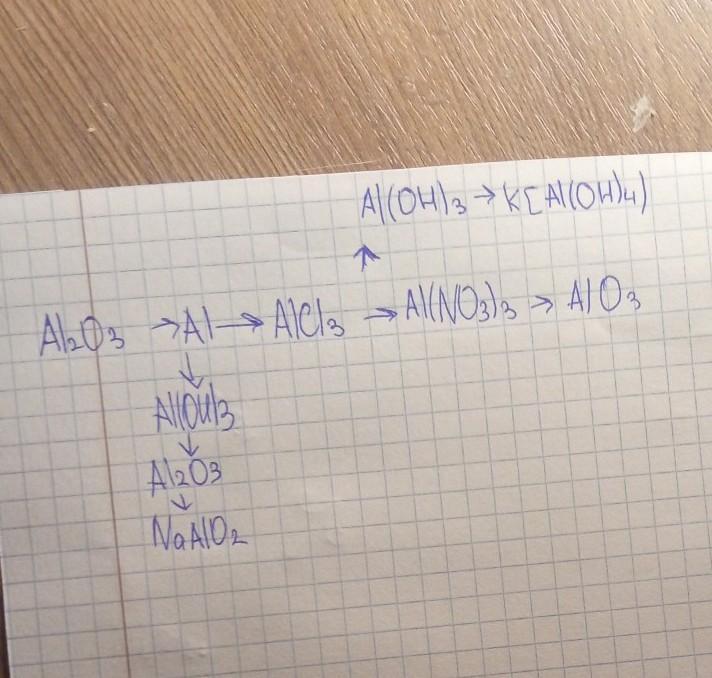 Al(OH)3 → K[Al(OH)4)
↑
Al2O3 → Al → AlCl3 → Al(NO3)3 → AlO3
↓
Al(OH)3
↓
Al2O3
↓
NaAlO2